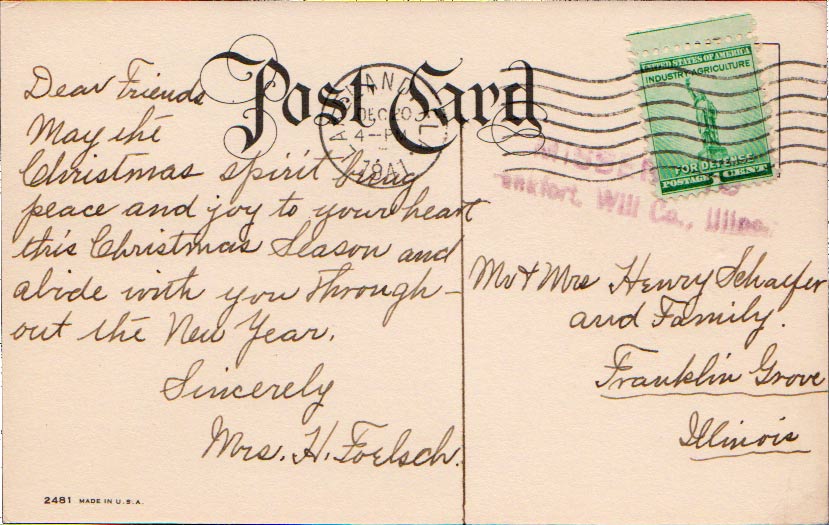 Post Card
DEC 20
4 - PM
1941
UNITED STATES OF AMERICA
INDUSTRY AGRICULTURE
FOR DEFENSE
POSTAGE 1 CENT
Will Co., Illino
Dear Friends
May the
Christmas spirit bring
peace and joy to your heart
this Christmas Season and
abide with you through-
out the New Year.
Sincerely
Mrs. H. Foelsch.
Mr + Mrs Henry Schaefer
and Family.
Franklin Grove
Illinois
2481 MADE IN U.S.A.